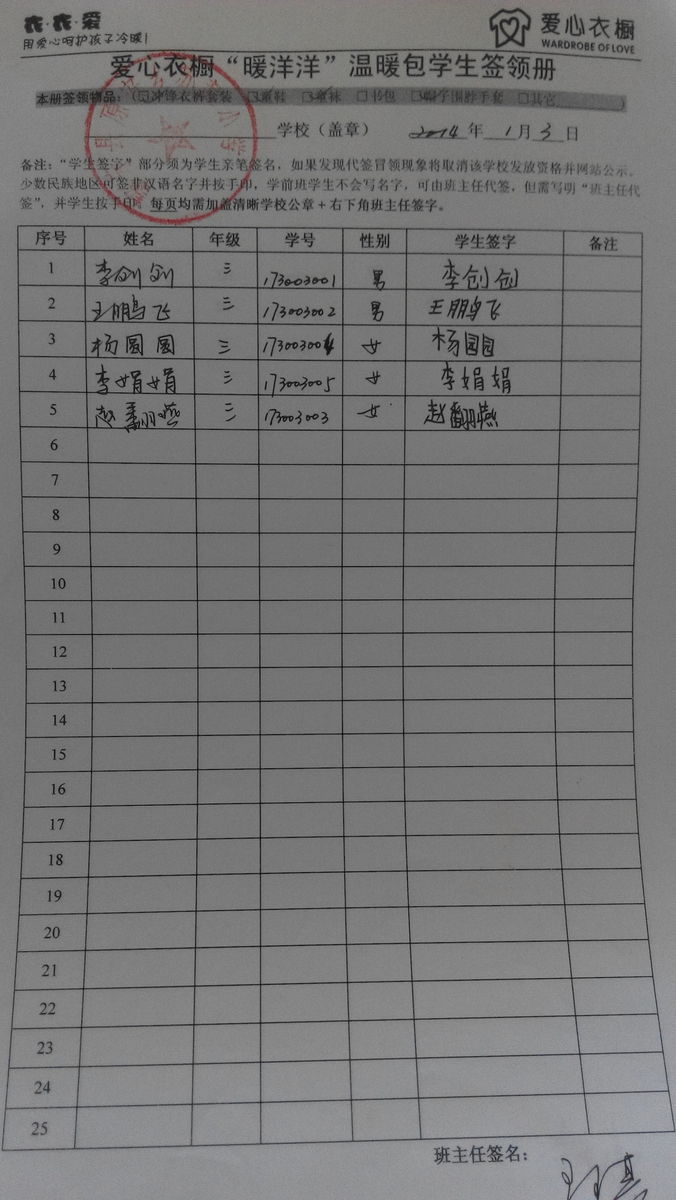 衣·衣·爱
用爱心呵护孩子冷暖!
爱心衣橱
WARDROBE OF LOVE
爱心衣橱“暖洋洋”温暖包学生签领册
本册签领物品:(☑冲锋衣裤套装 ☑童鞋 ☑童袜 □书包 ☑帽子围脖手套 □其它 )
学校(盖章) 2014年 1月3日
备注:“学生签字”部分须为学生亲笔签名,如果发现代签冒领现象将取消该学校发放资格并网站公示。
少数民族地区可签非汉语名字并按手印,学前班学生不会写名字,可由班主任代签,但需写明“班主任代
签”,并学生按手印。每页均需加盖清晰学校公章+右下角班主任签字。
序号 姓名 年级 学号 性别 学生签字 备注
1 李创创 三 173003001 男 李创创
2 王鹏飞 三 173003002 男 王鹏飞
3 杨圆圆 三 173003004 女 杨园园
4 李娟娟 三 173003005 女 李娟娟
5 赵翻燕 三 173003003 女 赵翻燕
6
7
8
9
10
11
12
13
14
15
16
17
18
19
20
21
22
23
24
25
班主任签名: